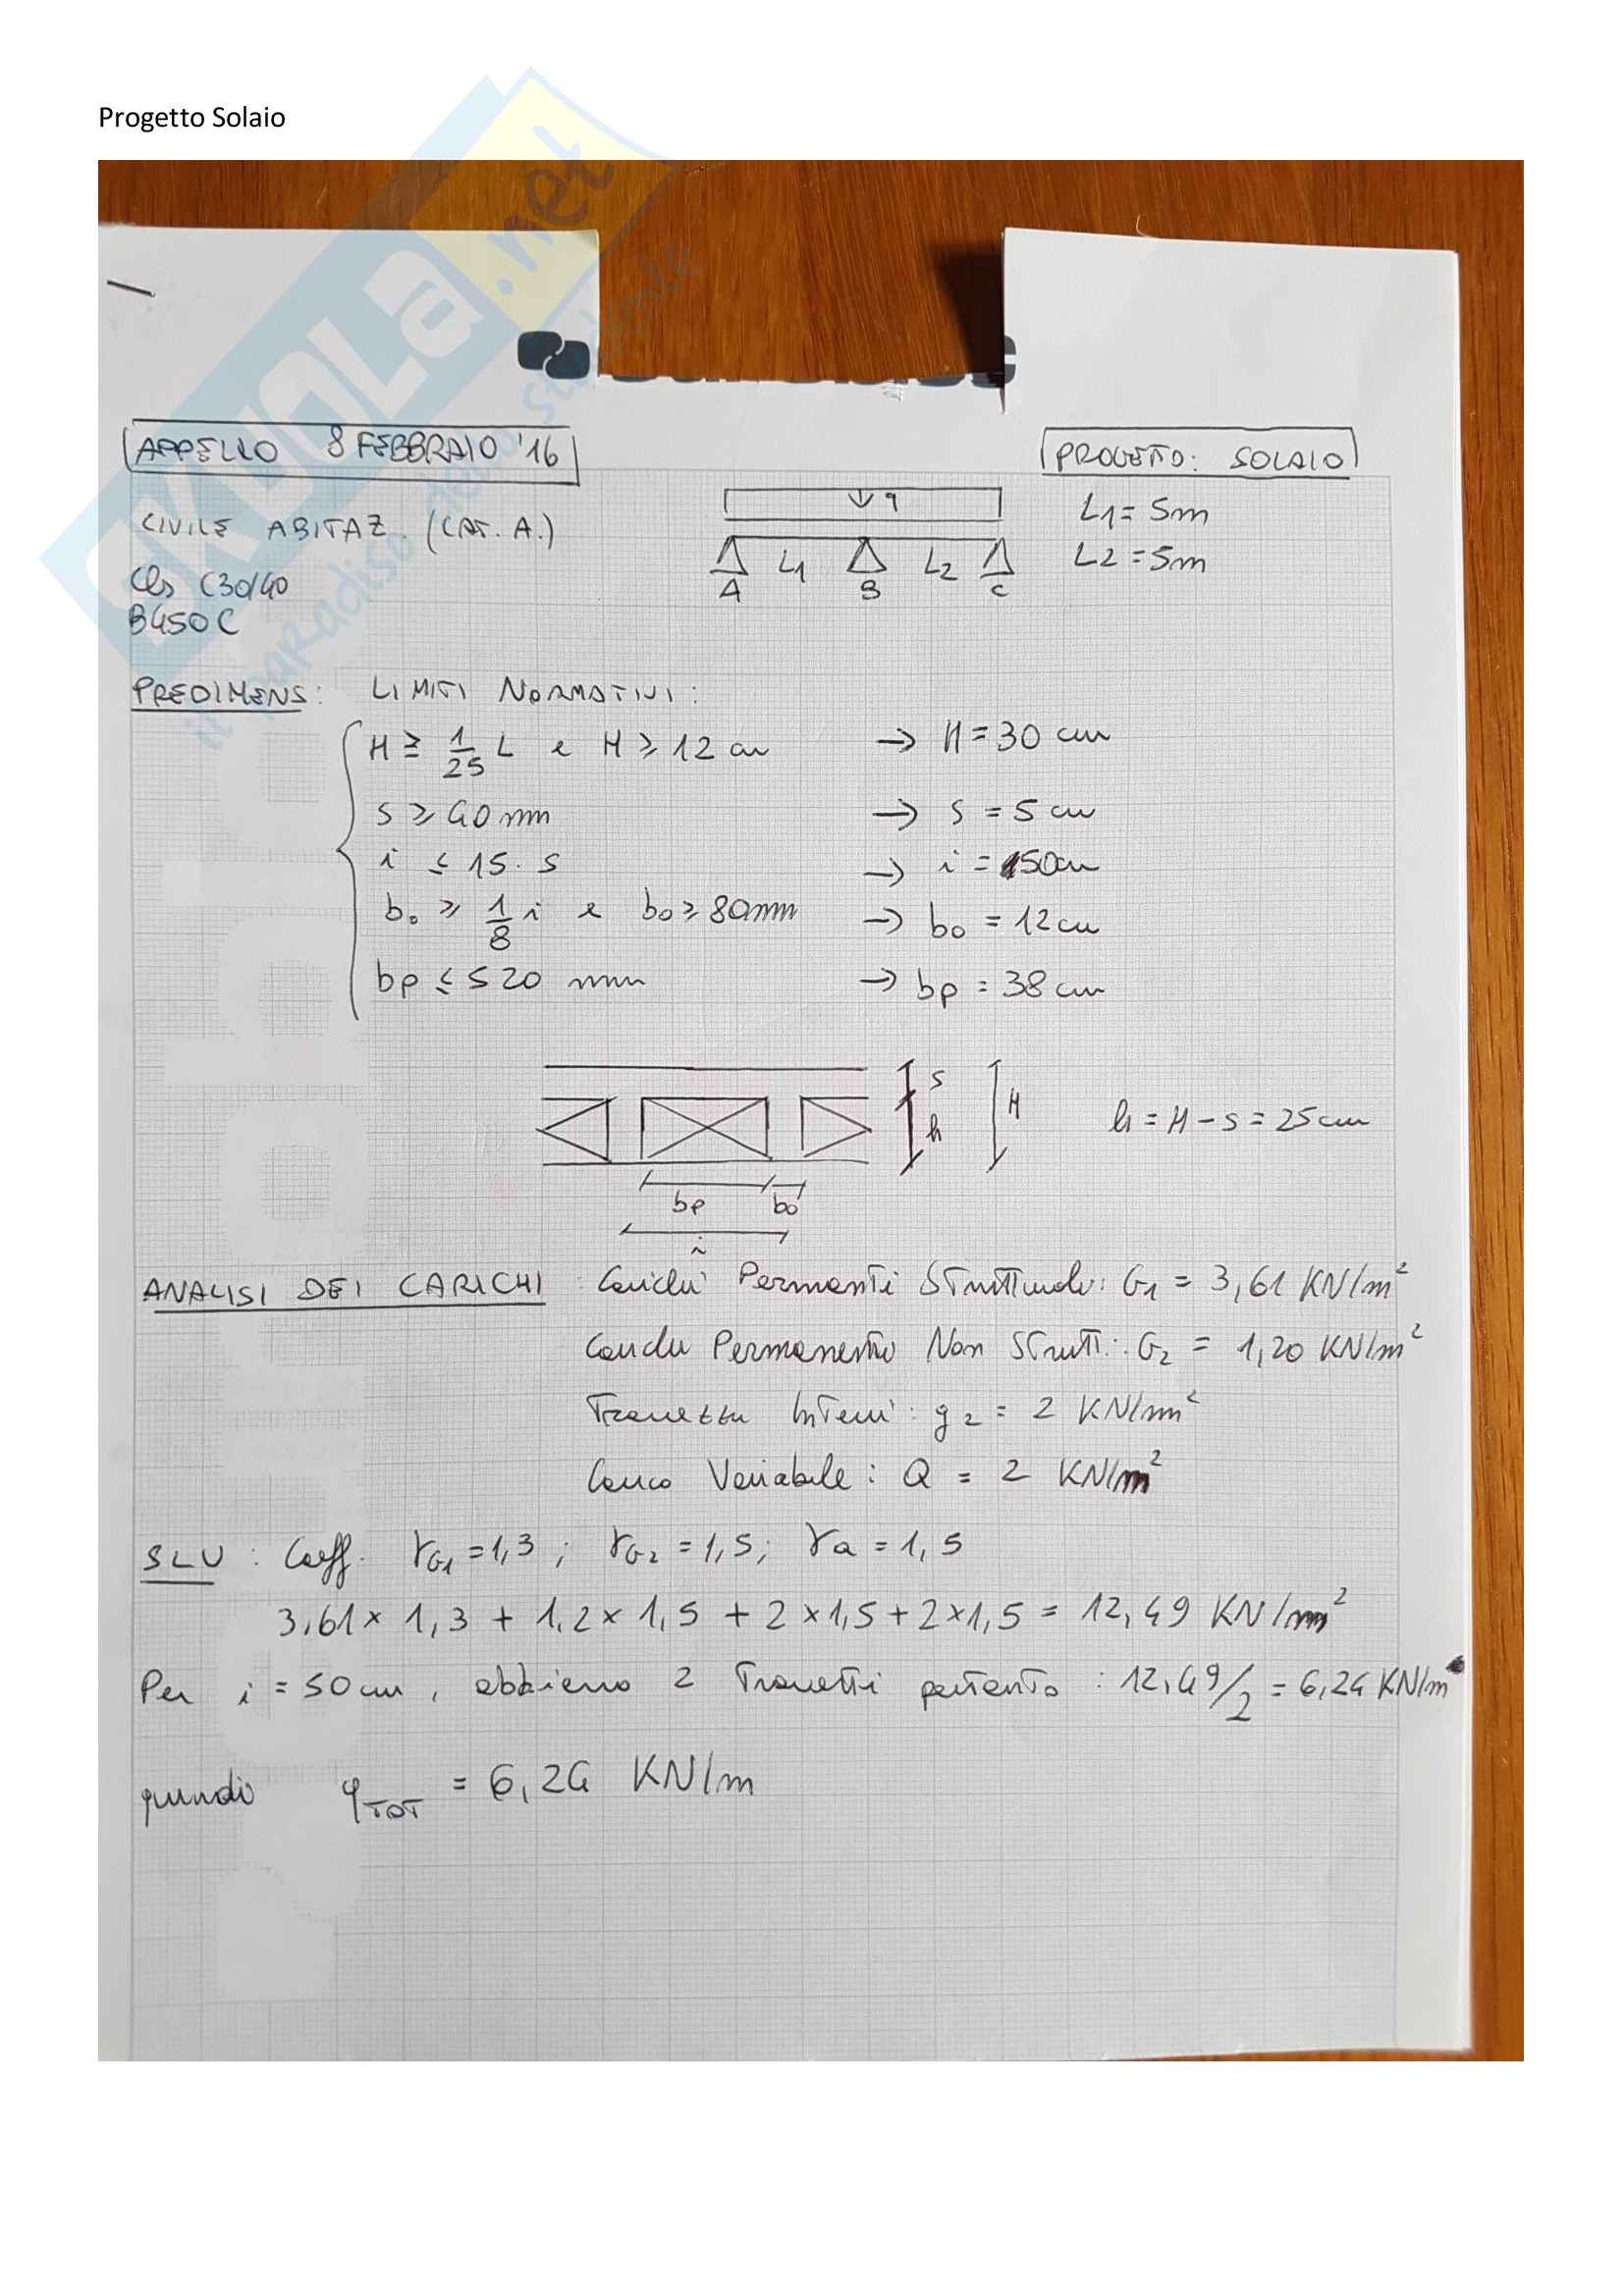 Progetto Solaio
SKUOLA.net
il paradiso dello studente
APPELLO 8 FEBBRAIO '16
PROGETTO: SOLAIO
CIVILE ABITAZ. (CAT. A.)
Cls C30/40
B450C
q
A L1 B L2 C
L1 = 5m
L2 = 5m
PREDIMENS: LIMITI NORMATIVI:
H ≥ 1/25 L e H ≥ 12 cm → H = 30 cm
s ≥ 40 mm → s = 5 cm
i ≤ 15 · s → i = 50cm
b0 ≥ 1/8 i e b0 ≥ 80mm → b0 = 12cm
bp ≤ 520 mm → bp = 38 cm
s
h
H
h = H - s = 25cm
bp b0
i
ANALISI DEI CARICHI : Carichi Permanenti Strutturali: G1 = 3,61 KN/m²
Carichi Permanenti Non Strutt.: G2 = 1,20 KN/m²
Tramezzi Interni: g2 = 2 KN/m²
Carico Variabile: Q = 2 KN/m²
SLU : Coeff. γG1 = 1,3 ; γG2 = 1,5; γQ = 1,5
3,61 x 1,3 + 1,2 x 1,5 + 2 x 1,5 + 2 x 1,5 = 12,49 KN/m²
Per i = 50 cm, abbiamo 2 Travetti pertanto : 12,49/2 = 6,24 KN/m
quindi qTOT = 6,24 KN/m